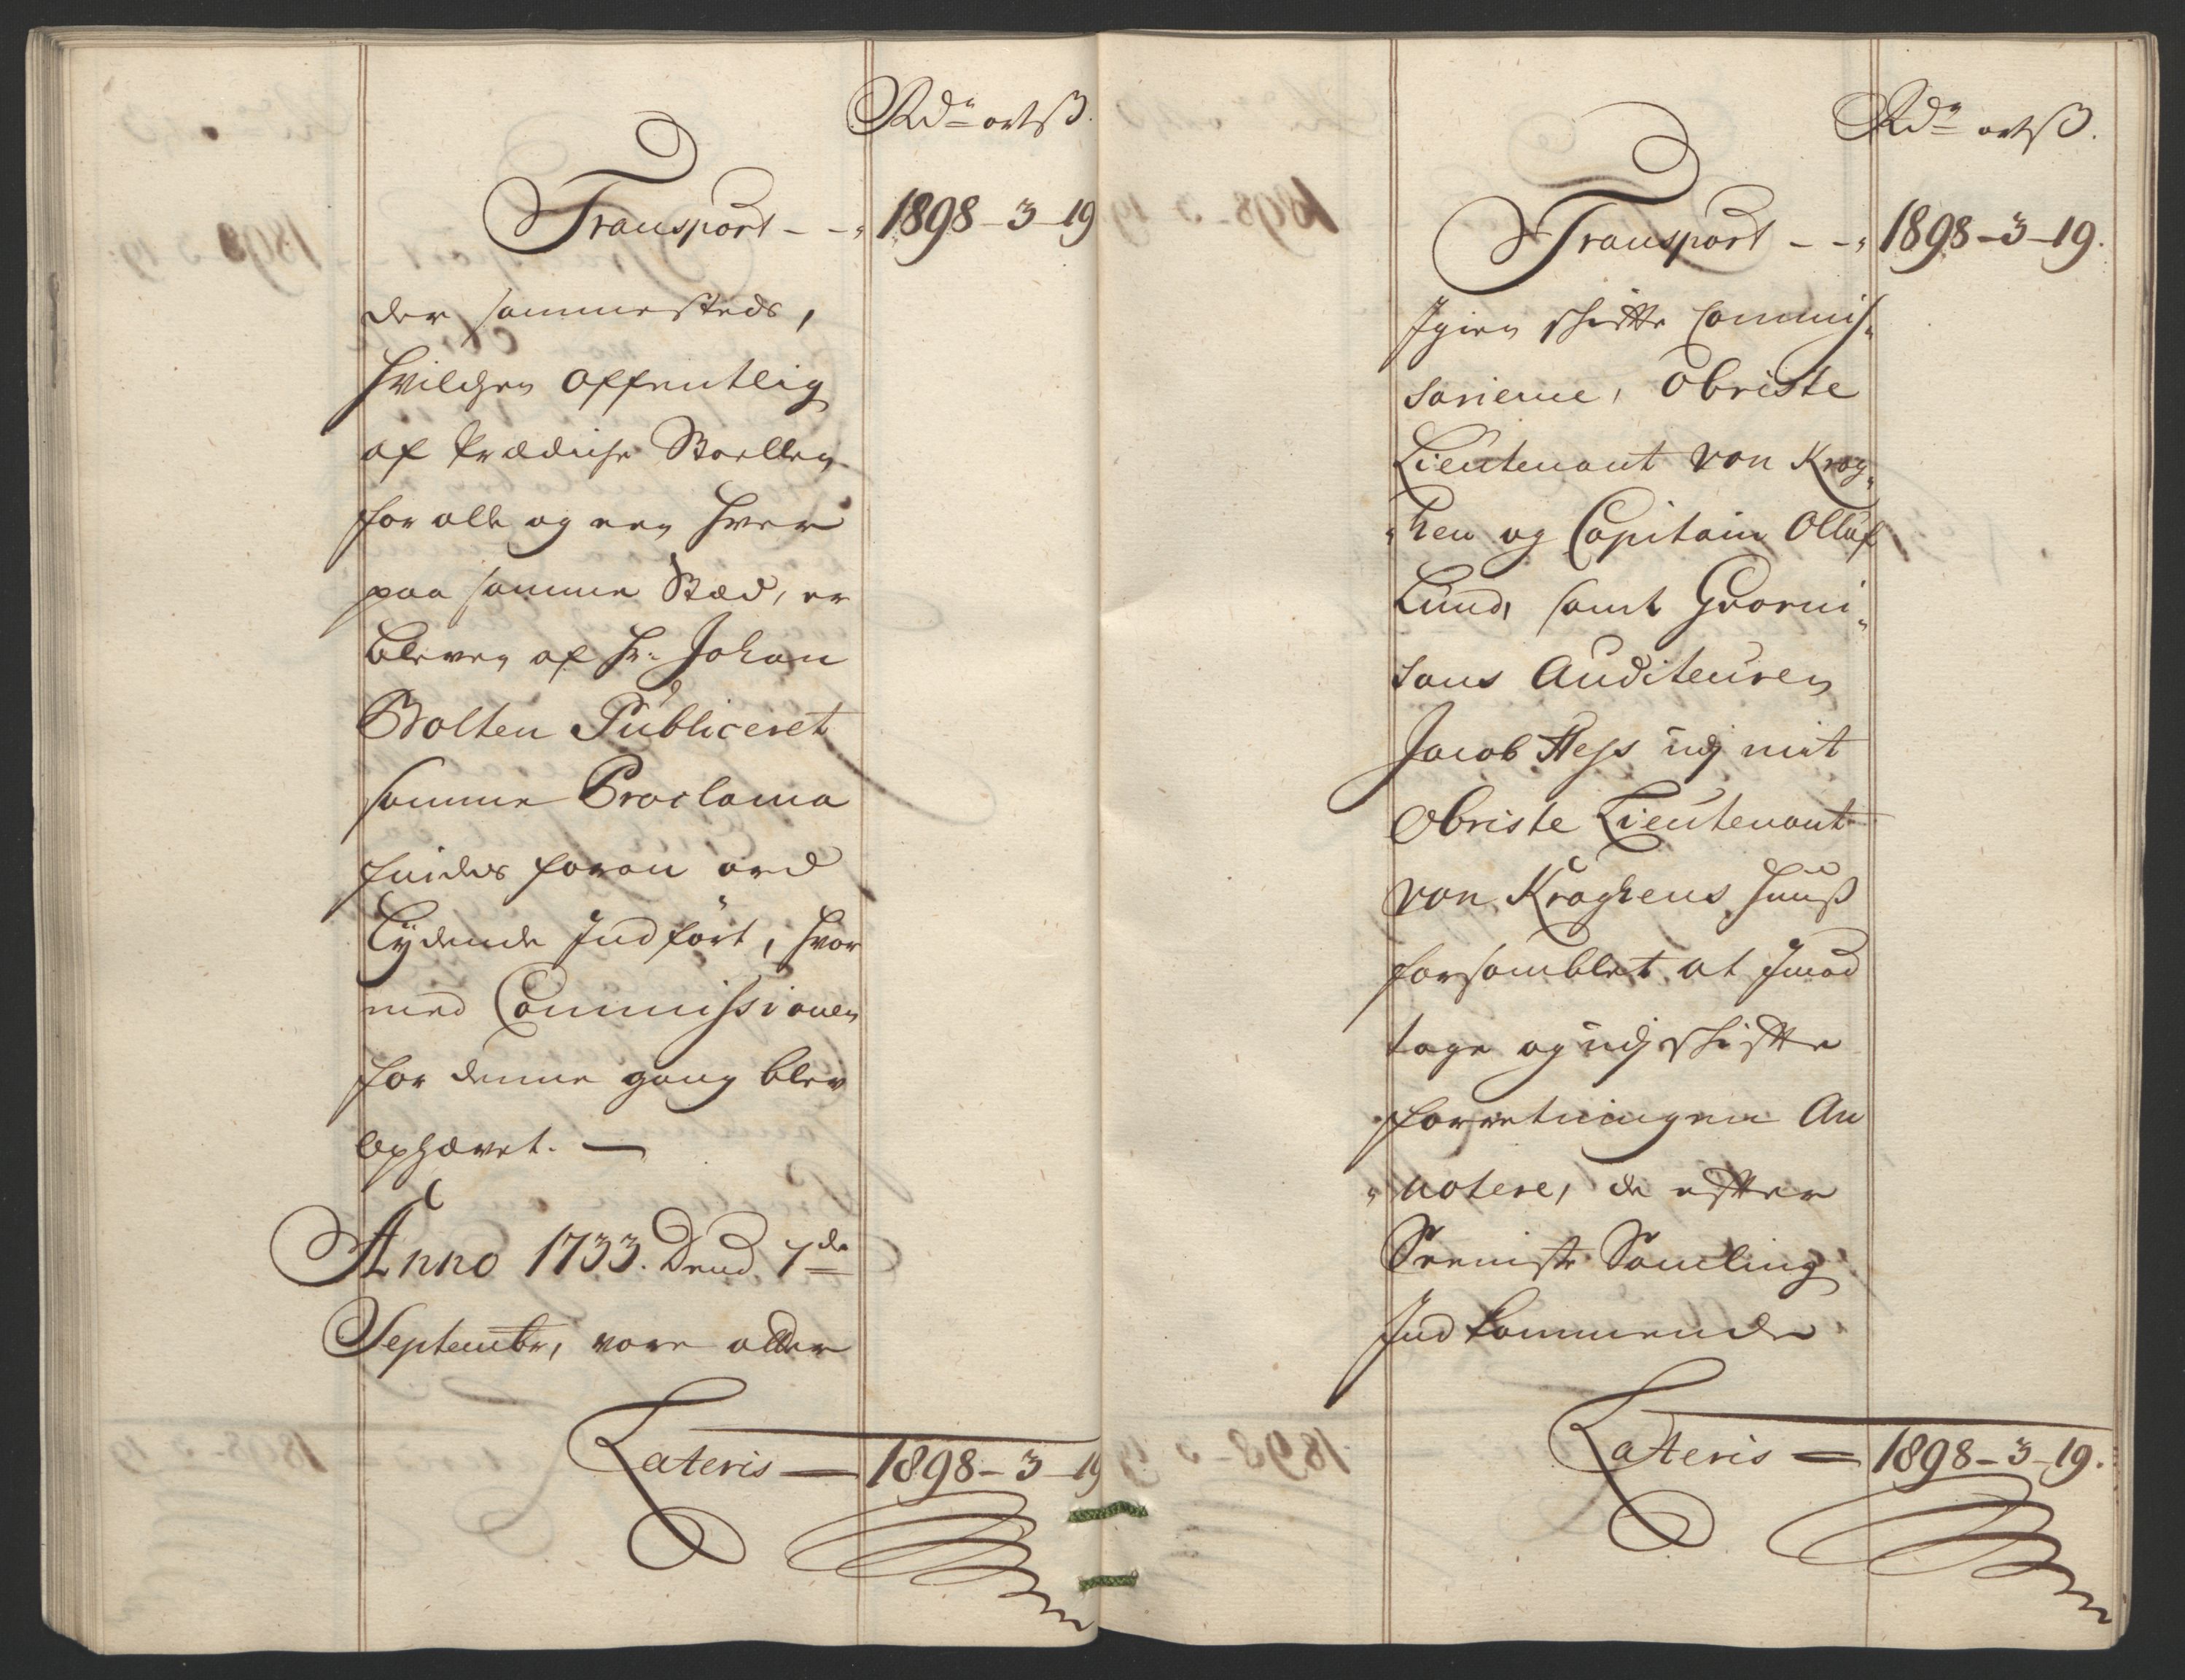 Rdr ort ß.
Transport - - 1898 - 3 - 19
der sammesteds,
hvilchen offentlig
af Prædiche Stoellen
for alle og een hver
paa samme Stæd, er
bleven af Hr: Johan
Bolten Publiceret
samme Proclama
findes foran ord
Lydende Indført, hvor
med Commissionen
for denne gang blev
Ophævet. —
Anno 1733. Dend 7de
Septembr, vare atter
Lateris — 1898 - 3 - 19
Rdr ort ß.
Transport - - 1898 - 3 - 19.
Igien Skifte Commis-
sarierne, Obriste
Lieutenant von Krog-
hen og Capitain Olluf
Lund, samt Gvarni-
sons Auditeuren
Jacob Hess udj mit
Obriste Lieutenant
von Kroghens Huuß
forsamblet at Imod
tage og udj Skifte
forretningen An
notere, de efter
Seeniste Samling
Indkommende
Lateris — 1898 - 3 - 19.